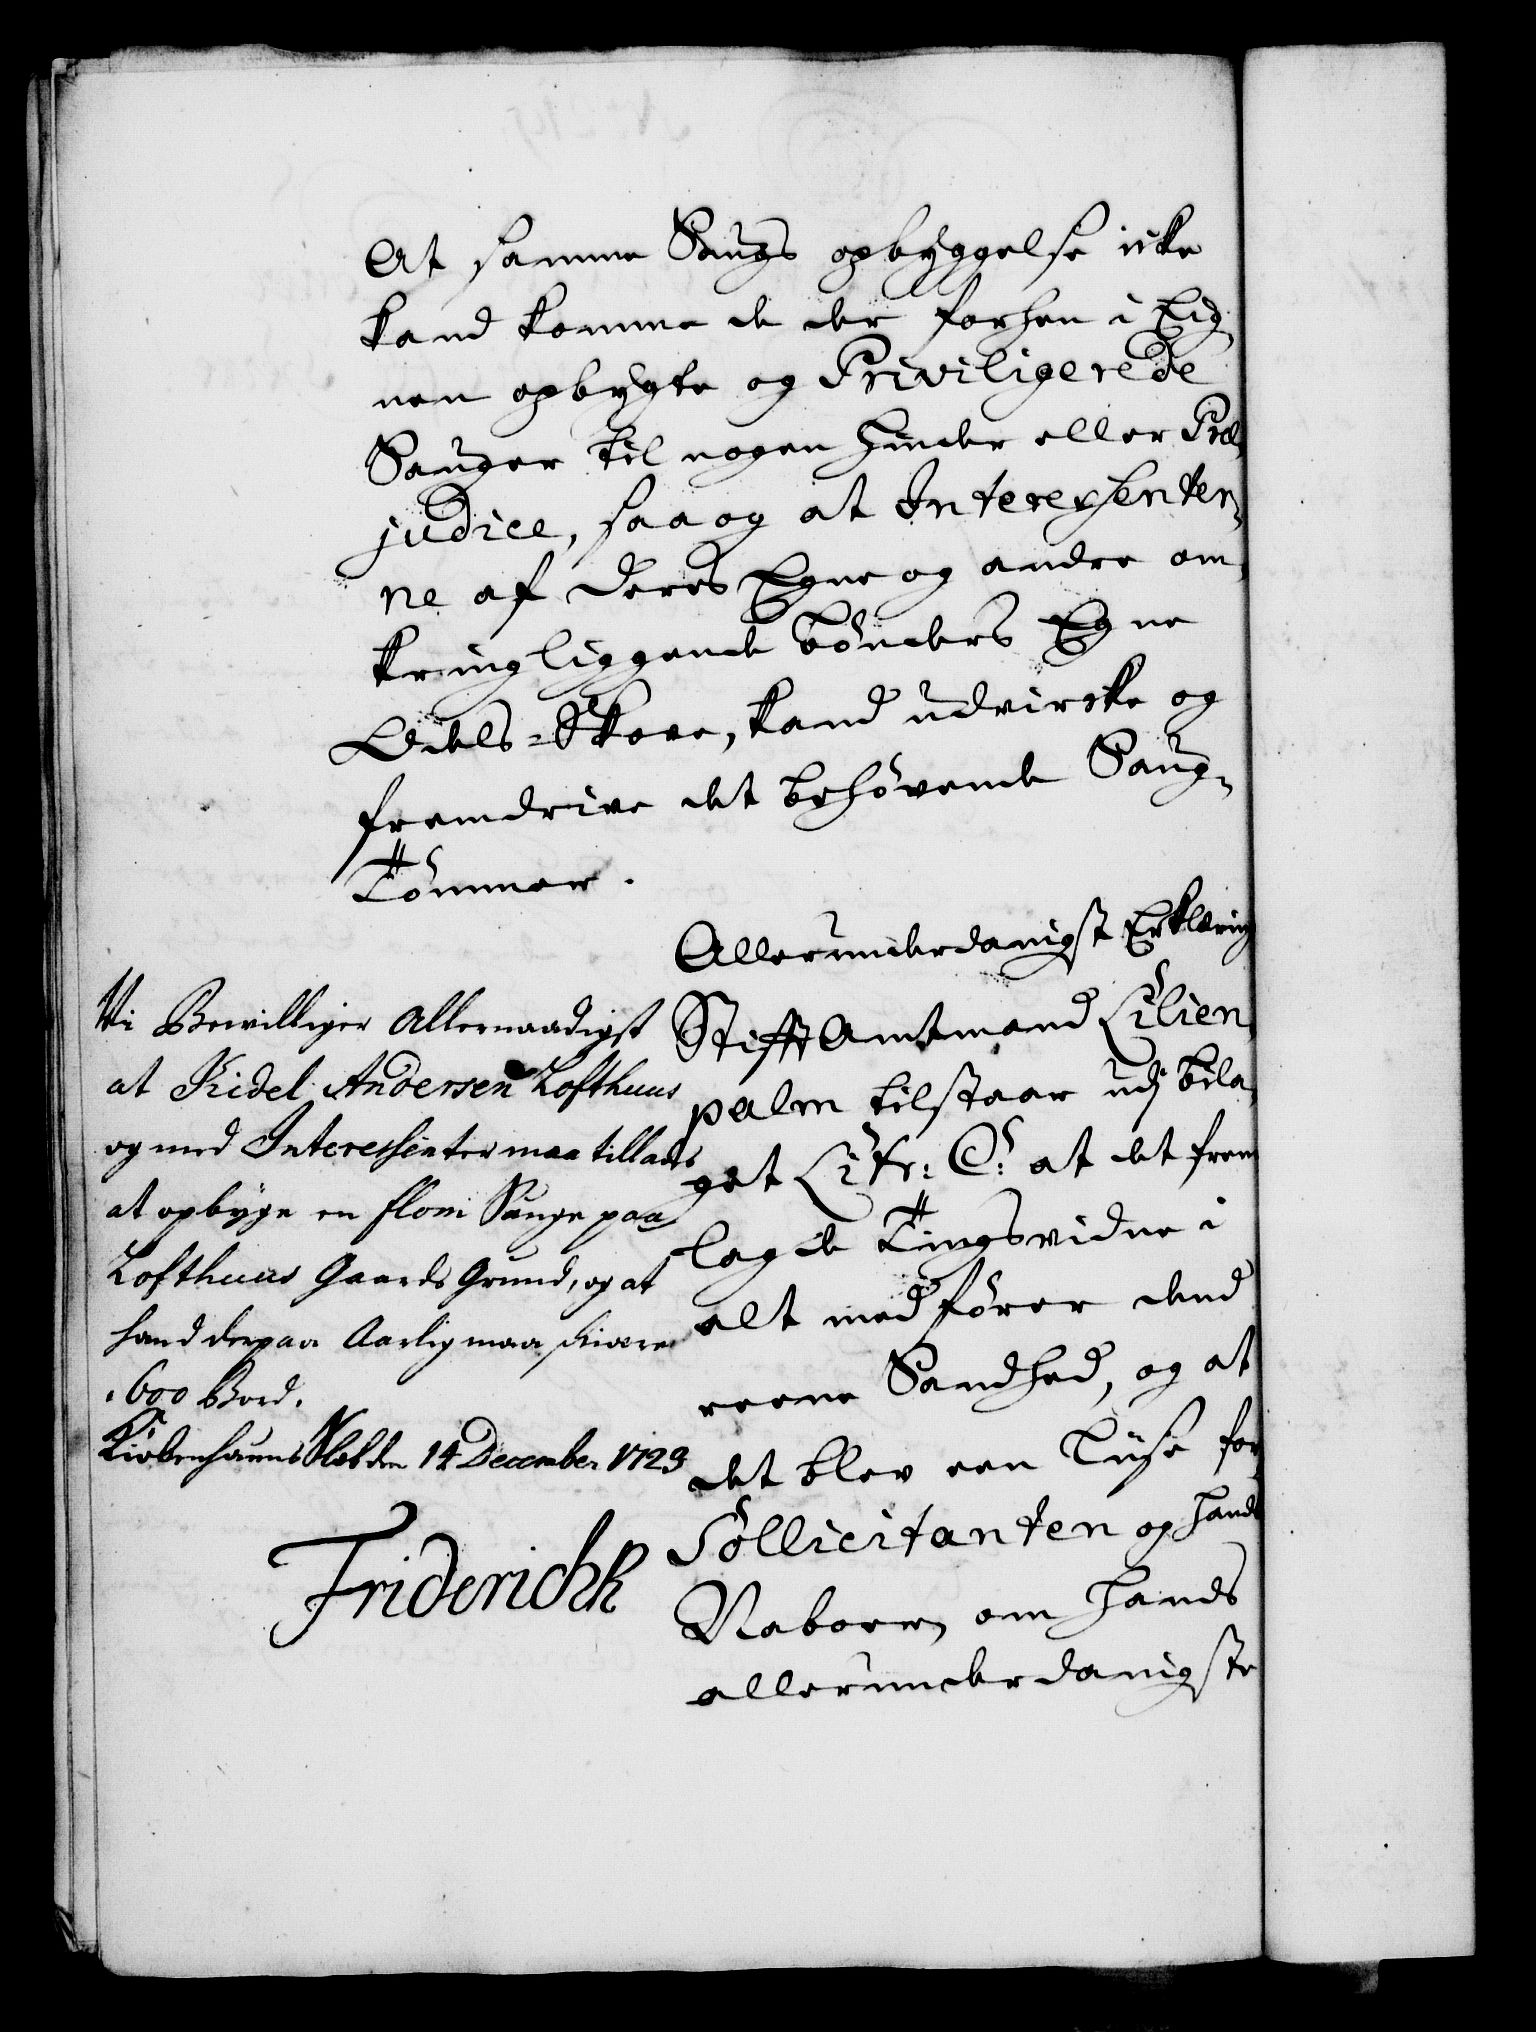 At samme Saugs opbÿggelse icke
kand komme de der forhen i Eig„
nen opbÿgte og Priviligerede
Sauger til nogen Hinder eller Præ„
judice, saa og at Interessenter„
ne af deres Egne og andre om„
kringliggende bönders Egne
Odels-Skove, kand udvircke og
fremdrive det behövende Saug„
Tömmer.
Allerunderdanigst Erklæring
Stifft Amtmand Lilien„
palm tilstaar udj bila„
get Litr: C: at det frem„
lagde Tingsvidne i
alt medförer dend
reene Sandhed, og at
det blev een Lise for
Sollicitanten og hands
Naboer, om hands
allerunderdanigste
Vi Bewilliger Allernaadigst
at Kidel Andersen Lofthuus
og med Interessenter maa tillades
at opbyge en flom Sauge paa
Lofthuus Gaards Grund, og at
hand derpaa Aarlig maa skiære
1600 Bord.
Kiøbenhauns Slot den 14 December 1723
Friderich R